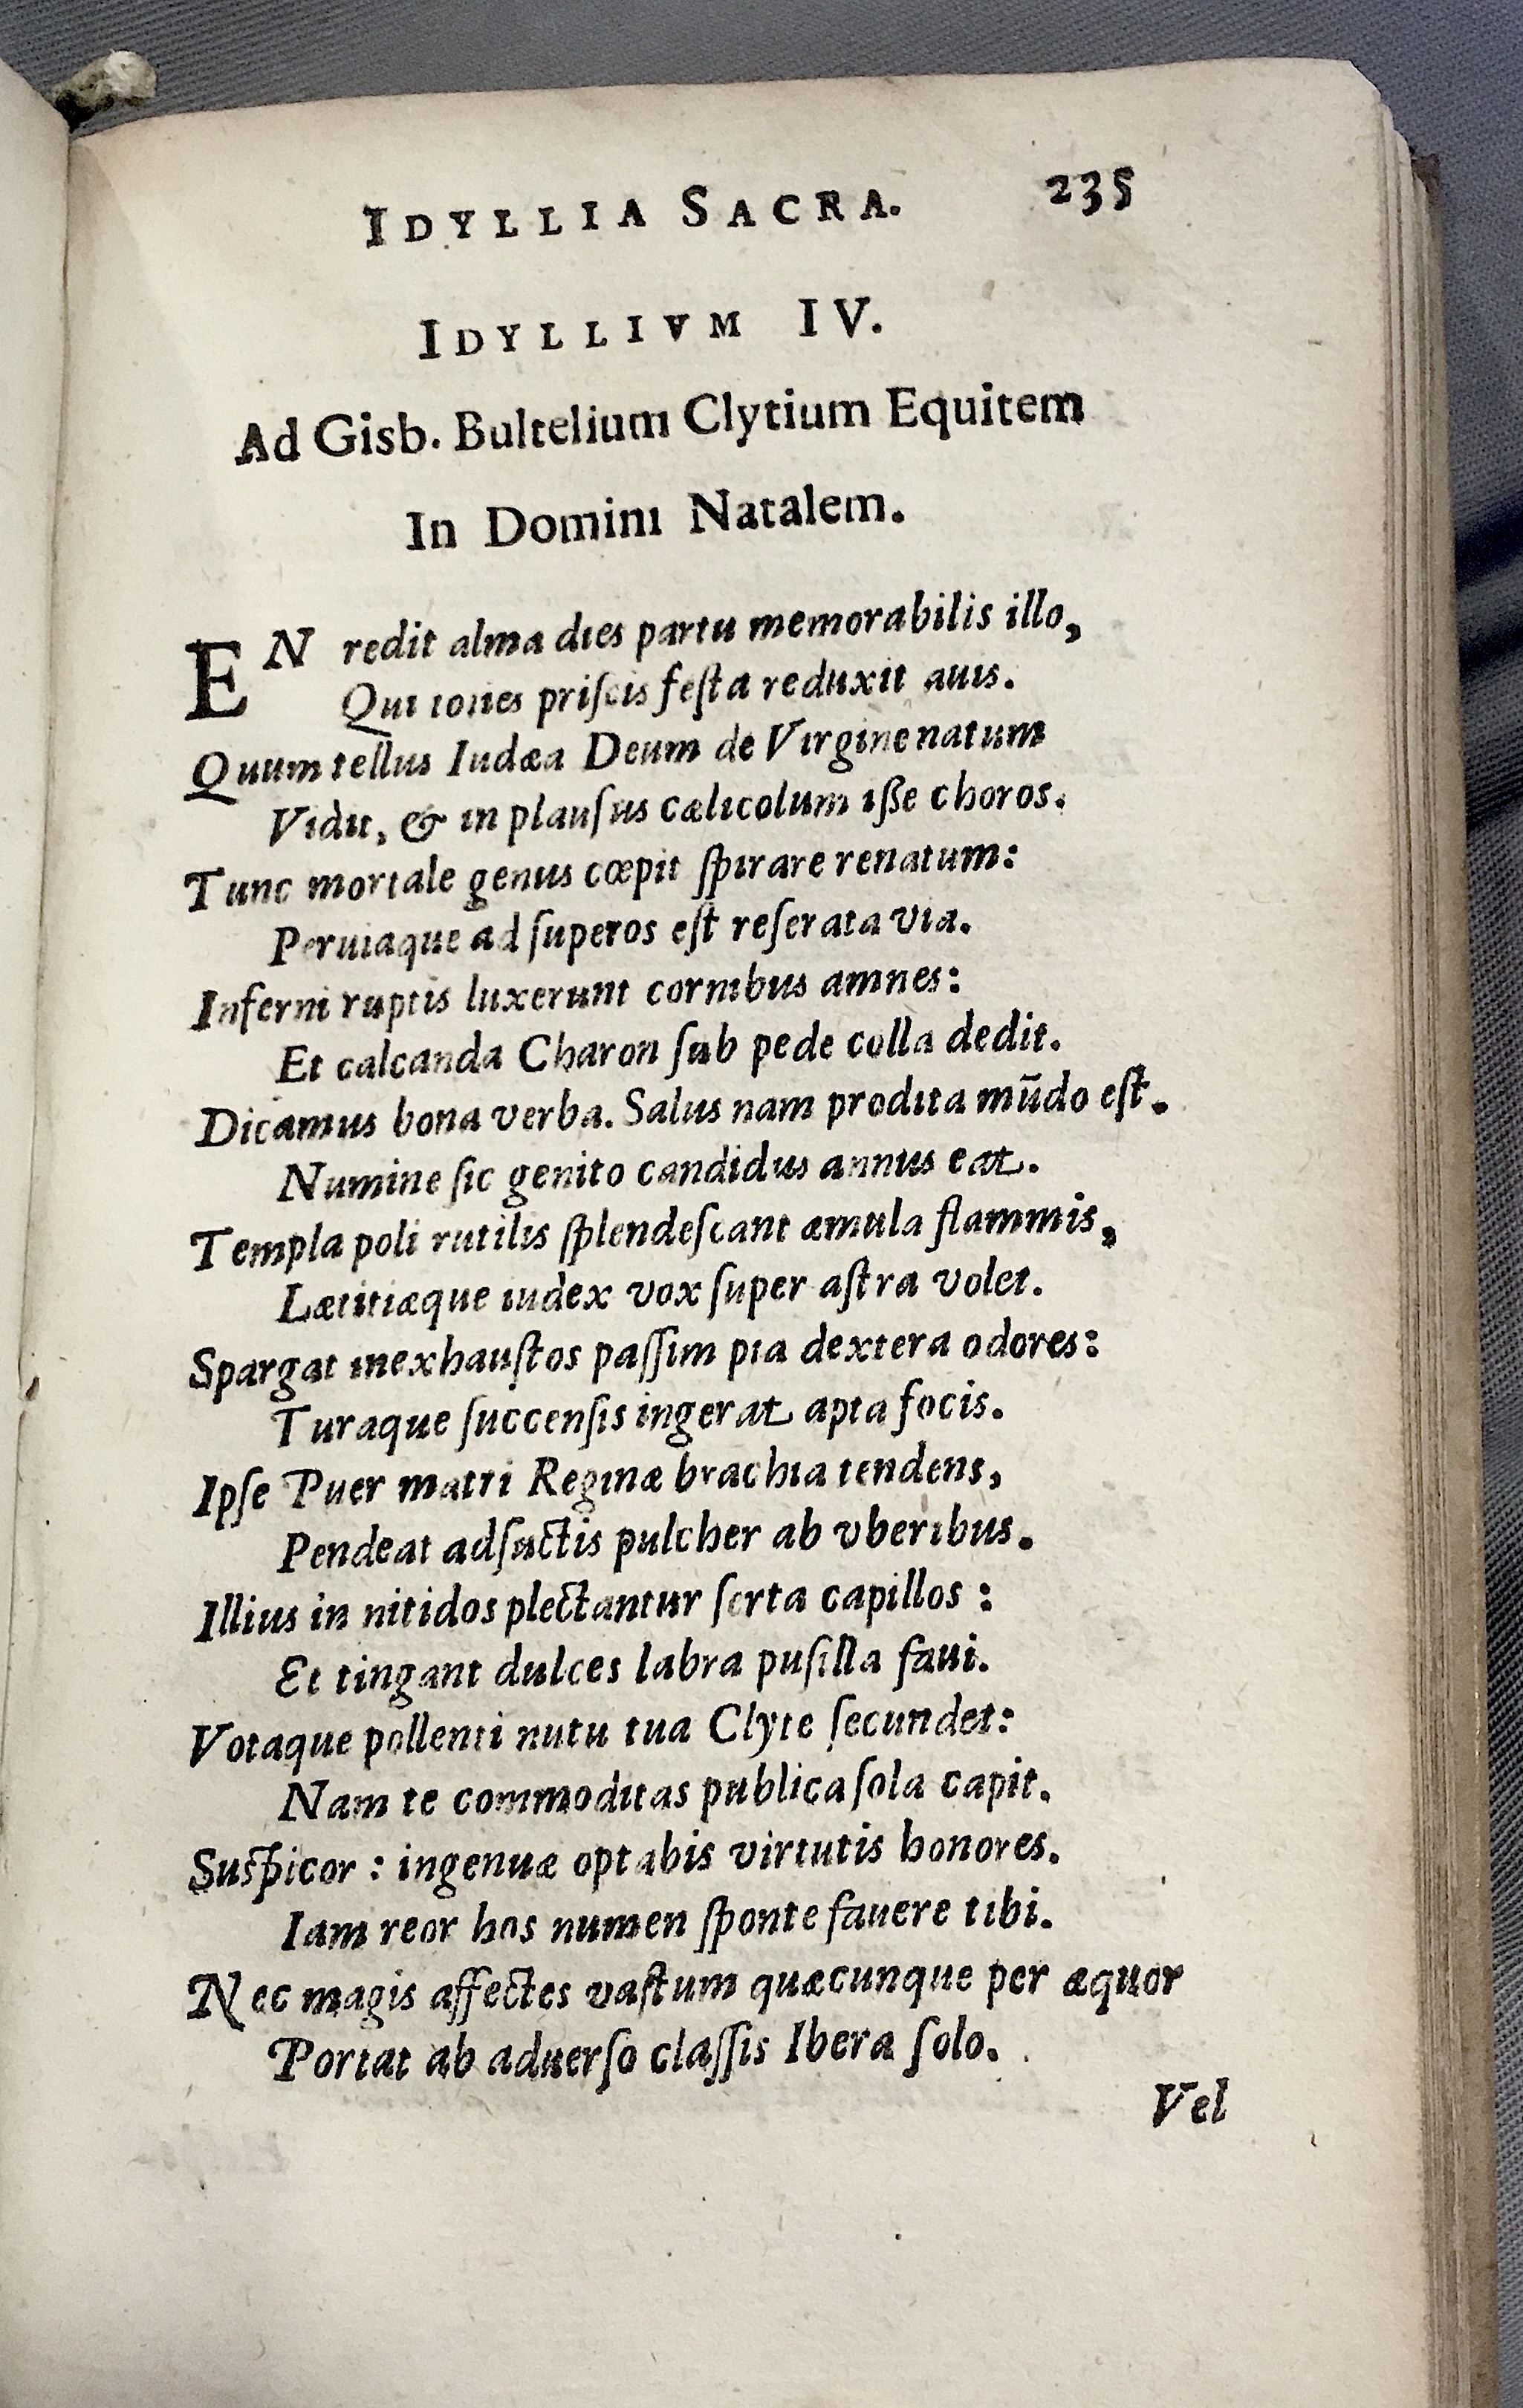 IDYLLIA SACRA. 235
IDYLLIVM IV.
Ad Gisb. Bultelium Clytium Equitem
In Domini Natalem.
EN redit alma dies partu memorabilis illo,
Qui toties priſcis feſta reduxit auis.
Quum tellus Iudæa Deum de Virgine natum
Vidit, & in plauſus cælicolum iſſe choros.
Tunc mortale genus cœpit ſpirare renatum:
Peruiaque ad ſuperos eſt reſerata via.
Inferni ruptis luxerunt cornibus amnes:
Et calcanda Charon ſub pede colla dedit.
Dicamus bona verba. Salus nam prodita mūdo eſt.
Numine ſic genito candidus annus eat.
Templa poli rutilis ſplendeſcant æmula flammis,
Lætitiæque index vox ſuper aſtra volet.
Spargat inexhauſtos paſſim pia dextera odores:
Turaque ſuccenſis ingerat apta focis.
Ipſe Puer matri Reginæ brachia tendens,
Pendeat adſuctis pulcher ab vberibus.
Illius in nitidos plectantur ſerta capillos :
Et tingant dulces labra puſilla faui.
Votaque pollenti nutu tua Clyte ſecundet:
Nam te commoditas publica ſola capit.
Suſpicor : ingenuæ optabis virtutis honores.
Iam reor hos numen ſponte fauere tibi.
Nec magis affectes vaſtum quæcunque per æquor
Portat ab aduerſo claſſis Ibera ſolo.
Vel